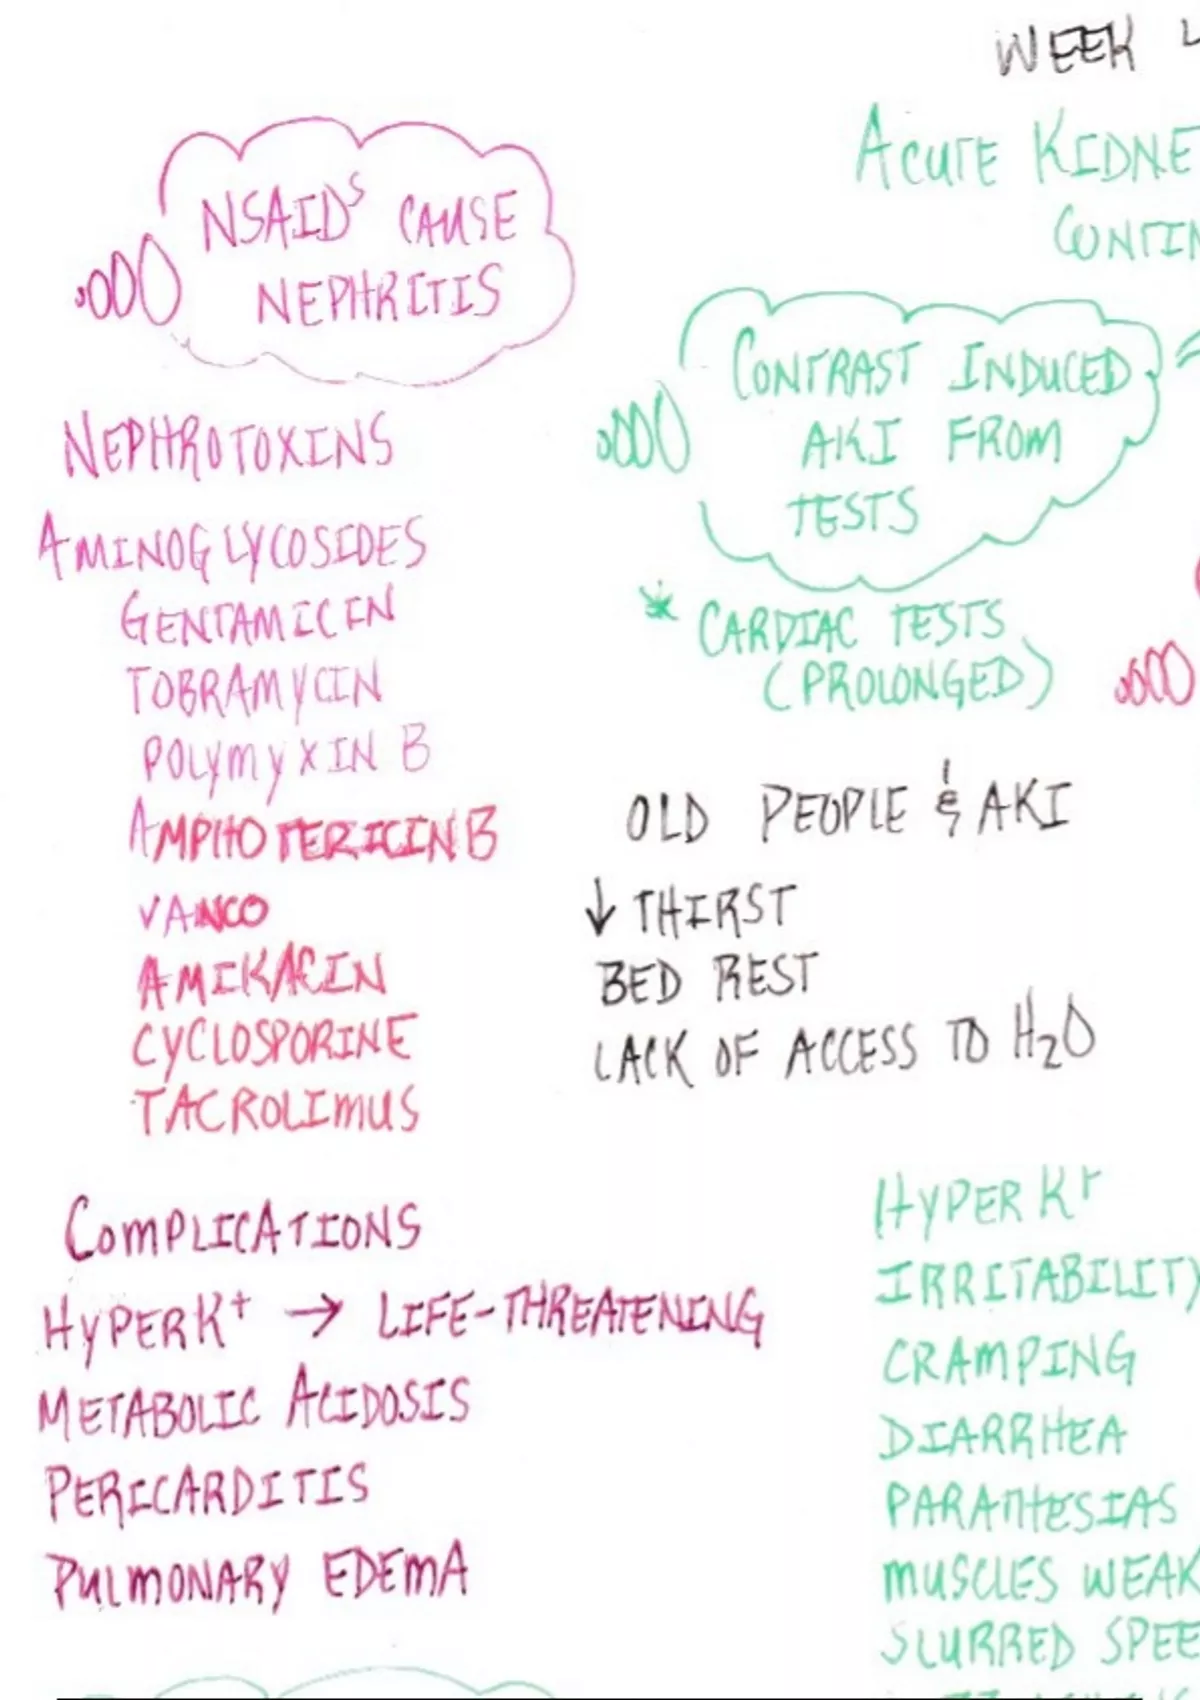 WEEK
ACUTE KIDNE
CONTIN
NSAIDS CAUSE
NEPHRITIS
CONTRAST INDUCED
AKI FROM
TESTS
* CARDIAC TESTS
(PROLONGED)
NEPHROTOXINS
AMINOGLYCOSIDES
GENTAMICIN
TOBRAMYCIN
POLYMYXIN B
AMPHOTERICIN B
VANCO
AMIKACIN
CYCLOSPORINE
TACROLIMUS
OLD PEOPLE & AKI
↓ THIRST
BED REST
LACK OF ACCESS TO H₂O
COMPLICATIONS
HYPERK⁺ → LIFE-THREATENING
METABOLIC ACIDOSIS
PERICARDITIS
PULMONARY EDEMA
HYPERK⁺
IRRITABILITY
CRAMPING
DIARRHEA
PARATHESIAS
MUSCLES WEAK
SLURRED SPEE